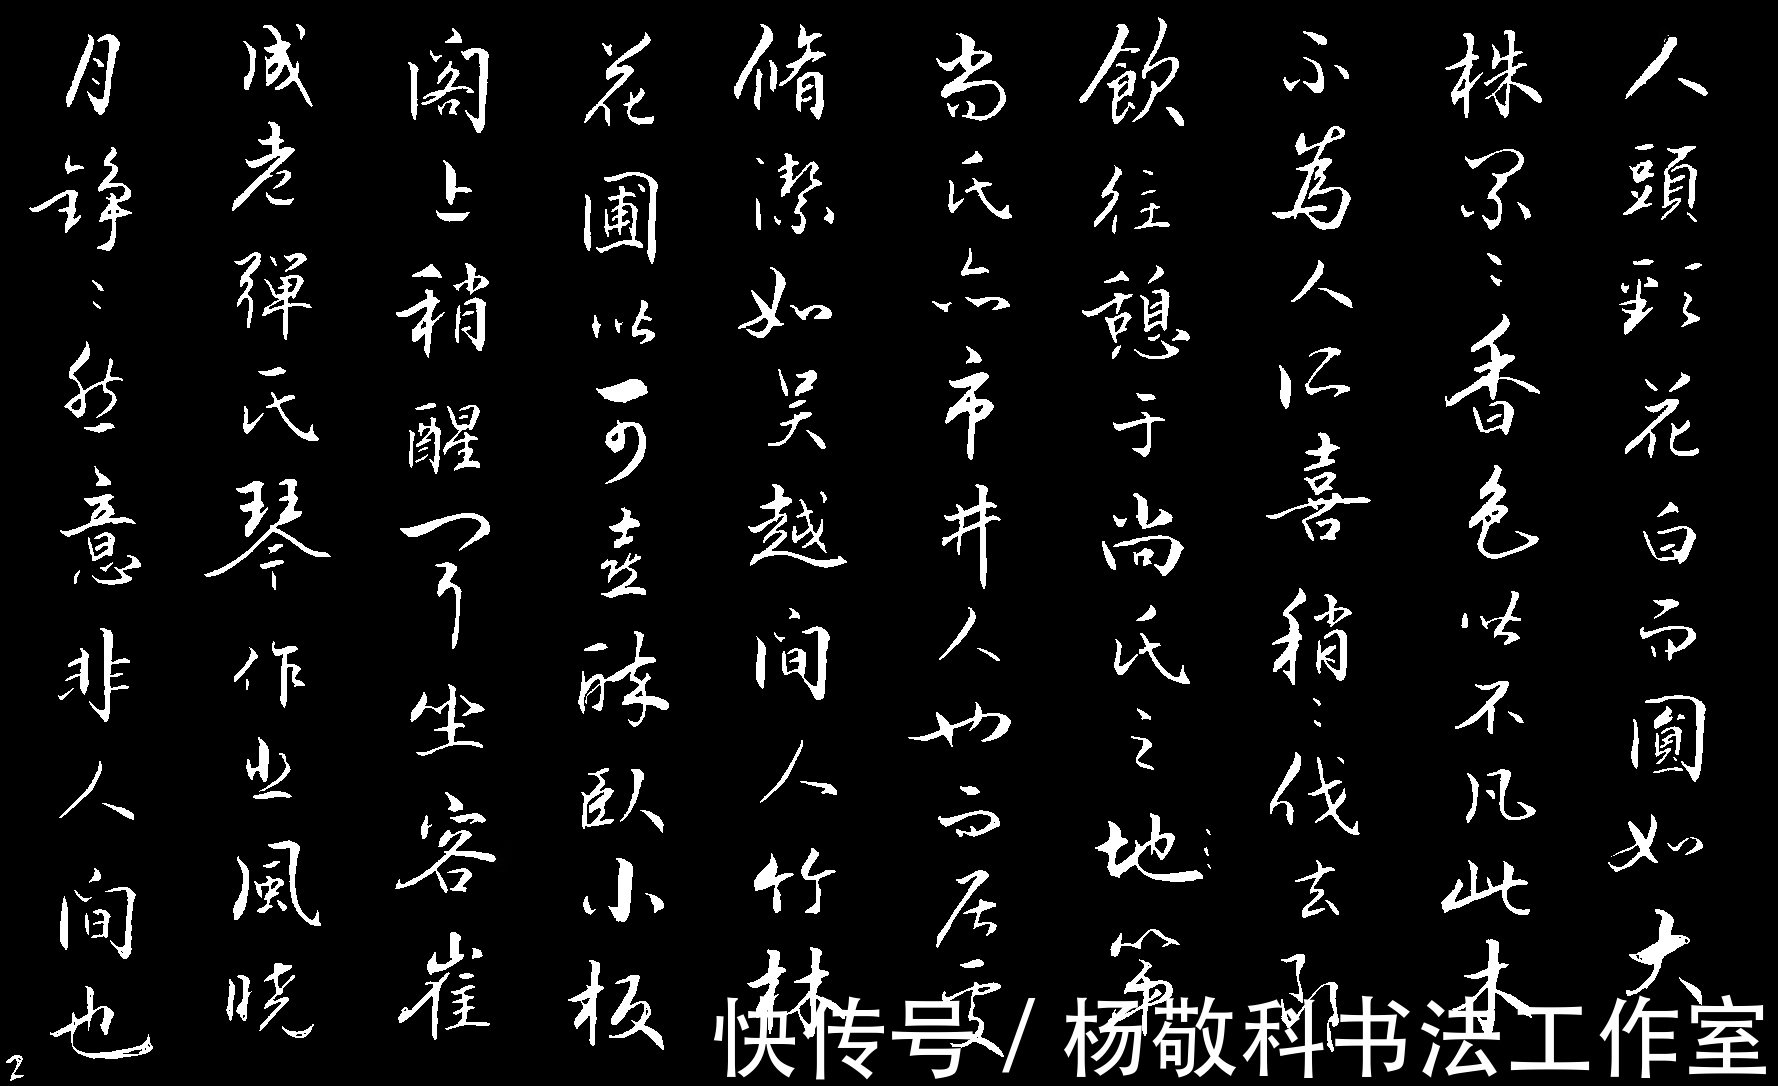 人頭頸花白而圓如大
株累〻香色皆不凡此木
不為人所喜稍〻伐去既
飲往憩于尚氏之地第
尚氏亦市井人也而居處
脩潔如吳越間人竹林
花圃皆可喜醉臥小板
閣上稍醒聞坐客崔
成老彈氏琴作悲風曉
月錚〻然意非人間也
2
快传号/杨敬科书法工作室